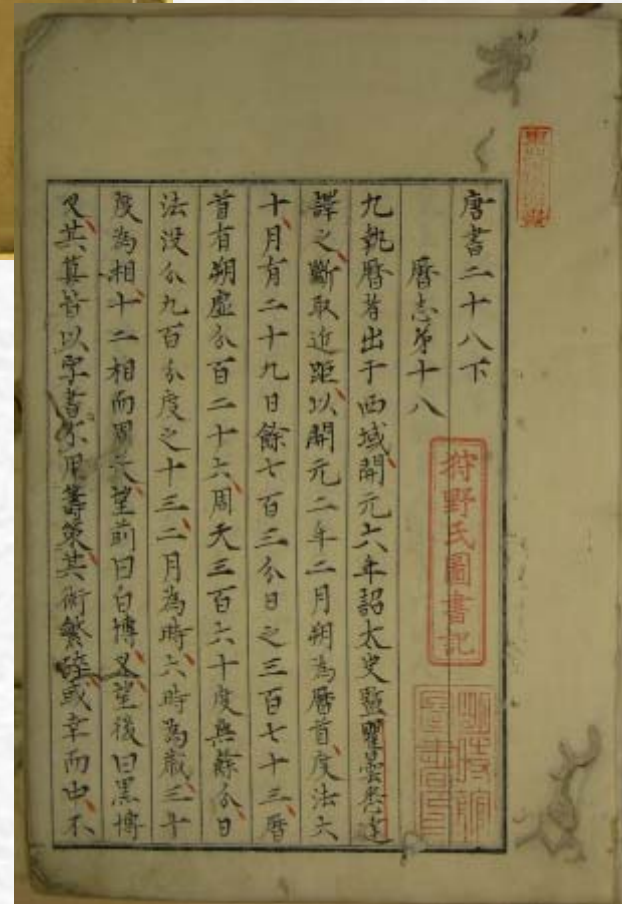 唐書二十八下
曆志第十八
九執曆者出于西域開元六年詔太史監瞿曇悉達
譯之斷取近距以開元二年二月朔為曆首度法六
十月有二十九日餘七百三分日之三百七十三曆
首有朔虛分百二十六周天三百六十度無餘分日
法沒分九百分度之十三二月為時六時為歲三十
度為相十二相而周天望前曰白博叉望後曰黑博
叉其算皆以字書不用籌策其術繁碎或幸而中不
狩野氏圖書記